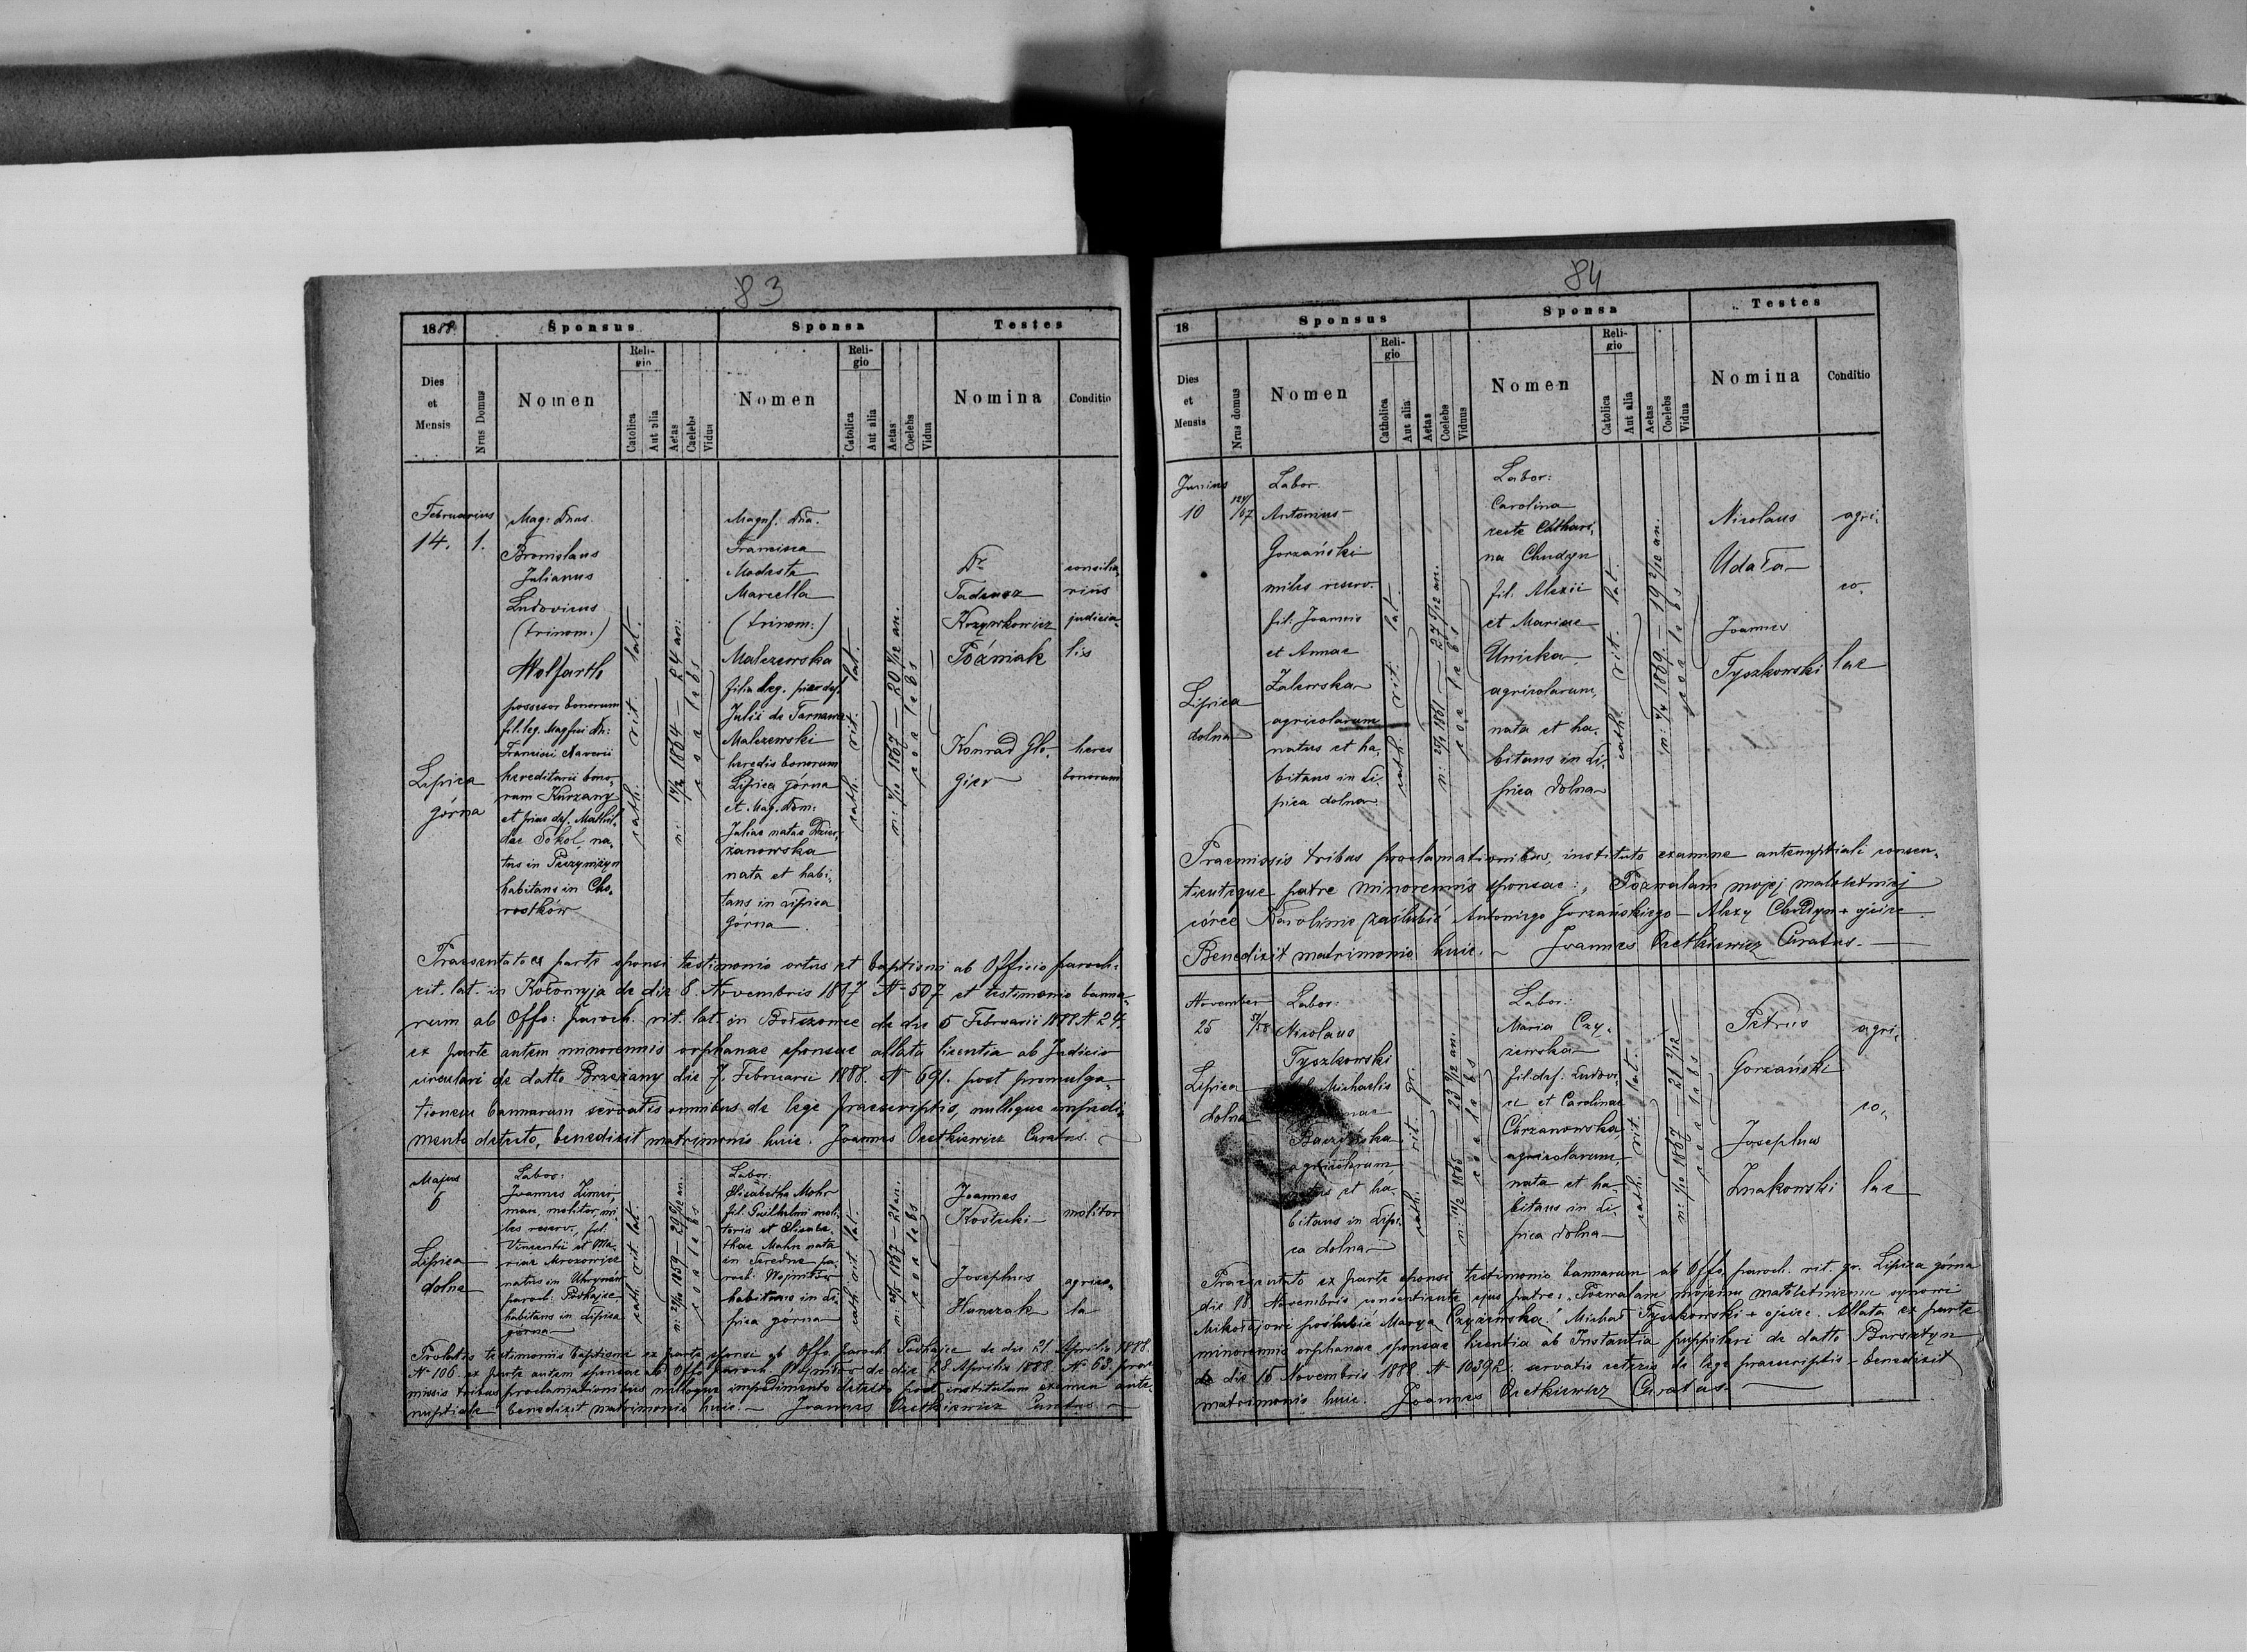 83
1888.
Sponsus
Sponsa
Testes
Dies
et
Mensis
Nrus Domus
Nomen
Reli-
gio
Catolica
Aut alia
Aetas
Caelebs
Vidus
Nomen
Reli-
gio
Catolica
Aut alia
Aetas
Coelebs
Vidua
Nomina
Conditio
Februarius
14.
1.
Lipica
górna
Mag: Dnus
Bronislaus
Julianus
Ludovicus
(trinom:)
Wolfarth
possesor bonorum
fil. leg. Magfici Dn:
Francisci Xaverii
hereditarii bono-
rum Kurzany
et prius def. Mathil-
dae Sokol, na-
tus in
habitans in Cho-
rostków
cath. rit. lat.
1864 — 24 an:
coelebs
Magnf. Dna.
Francisca
Modesta
Marcella
(trinom:)
Malczewska
filia leg. prius def.
Julii de Tarnawa
Malczewski
heredis bonorum
Lipica górna
et Mag. Dom:
Juliae natae Dzier-
żanowska
nata et habi-
tans in Lipica
górna
cath. rit. lat.
1867 — 20 an.
coelebs
Dr
Tadeusz
Krzyszkowicz
Poźniak
consilia-
rius
judicia-
lis
Konrad Glo-
gier
heres
bonorum
Praesentato ex parte sponsi testimonio ortus et baptismi ab Officio paroch.
rit. lat. in Kołomyja de die 8. Novembris 1887 N 507 et testimonio banno-
rum ab Offo: paroch. rit. lat. in Bołszowce de die 5 Februarii 1888 N 24.
ex parte autem minorennis orphanae sponsae allata licentia ab Judicio
circulari de datto Brzeżany die 7. Februarii 1888. N 691. post promulga-
tionem bannorum servatis omnibus de lege praescriptis, nulloque impedi-
mento detecto, benedixit matrimonio huic. Joannes Oretkiewicz Curatus.
Majus
6
Lipica
dolna
Labor:
Joannes Zimer-
man, molitor, mi-
les reserv., fil.
Vincentii et Ma-
riae Mrozowicz
natus in Uhrynów
paroch: Podhajce
habitans in Lipica
górna
cath. rit. lat.
1859 — 29 an.
coelebs
Labor.
Elisabetha Mohr
fil. Guilhelmi moli-
toris et Elisabe-
thae Mohr nata
in pa-
roch: Wojniłów
habitans in Li-
pica górna
cath. rit. lat.
1867 — 21 an.
coelebs
Joannes
Kostecki
molitor
Josephus
Hanczak
agrico-
la
Prolatis testimoniis baptismi ex parte sponsi ab Offo. paroch. Podhajce de die 21 Aprilis 1888.
N 106. ex parte autem sponsae ab Offo paroch. Wojniłów de die 28 Aprilis 1888. N 63. prae-
missis tribus proclamationibus nulloque impedimento detecto post institutum examen ante-
nuptiale benedixit matrimonio huic. — Joannes Oretkiewicz Curatus
84
18
Sponsus
Sponsa
Testes
Dies
et
Mensis
Nrus domus
Nomen
Reli-
gio
Catholica
Aut alia
Aetas
Coelebs
Viduus
Nomen
Reli-
gio
Catolica
Aut alia
Aetas
Coelebs
Vidua
Nomina
Conditio
Junius
10
Lipica
dolna
Labor.
Antonius
Gorzański
miles reserv.
fil. Joannis
et Annae
Zalewska
agricolarum
natus et ha-
bitans in Li-
pica dolna
cath. rit. lat.
1861 — 27 5/12 an.
coelebs
Labor:
Carolina
recte Cathari-
na Chudyn
fil. Alexii
et Mariae
Unicka
agricolarum,
nata et ha-
bitans in Li-
pica dolna
cath. rit. lat.
1869. — 19 2/12 an.
coelebs
Nicolaus
Udała
Joannes
Tyszkowski
agri-
co-
lae
Praemissis tribus proclamationibus, instituto examine antenuptiali consen-
tienteque patre minorennis sponsae: „Pozwalam mojej małoletniej
córce Karolinie zaślubić Antoniego Gorzańskiego — Alexy Chudyn + ojciec.
Benedixit matrimonio huic. Joannes Oretkiewicz Curatus.
November
25
57/58
Lipica
dolna
Labor:
Nicolaus
Tyszkowski
Michaelis
Baczyńska
agricolarum,
natus et ha-
bitans in Lipi-
ca dolna
cath. rit. gr.
1865 — 23 an.
coelebs
Labor:
Maria Czy-
żewska
fil. def: Ludovi-
ci et Carolinae
Chrzanowska,
agricolarum,
nata et ha-
bitans in Li-
pica dolna
cath. rit. lat.
1867 — 21 1/12
coelebs
Petrus
Gorzański
Josephus
Znakowski
agri-
co-
lae
Praesentato ex parte sponsi testimonio bannorum ab Offo. paroch. rit. gr. Lipica górna
die 18 Novembris consentiente ejus patre: „Pozwalam mojemu małoletniemu synowi
Mikołajowi poślubić Marya Czyżewska" Michał Tyszkowski + ojciec. Allata ex parte
minorennis orphanae sponsae licentia ab Instantia puppilari de datto Bursztyn
de die 15 Novembris 1888. N 10392. servatis ceteris de lege praescriptis — benedixit
matrimonio huic. Joannes Oretkiewicz Curatus.